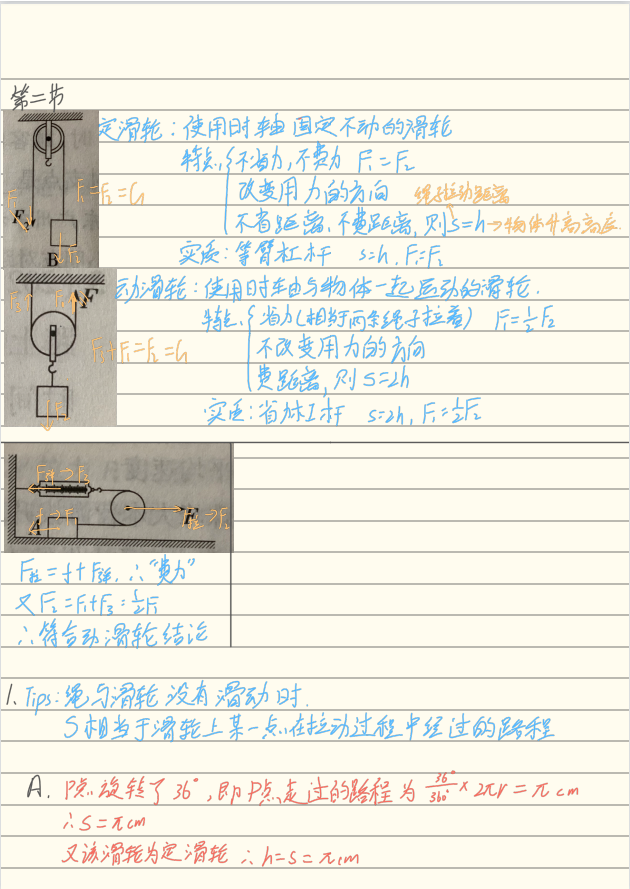 第二节
定滑轮：使用时轴固定不动的滑轮
特点 { 不省力，不费力 F₁=F₂
F₁=F₂=G
改变用力的方向 绳子拉动距离
不省距离、不费距离，则s=h→物体升高高度.
B F₂
实质：等臂杠杆 s=h，F₁=F₂
动滑轮：使用时轴与物体一起运动的滑轮.
特点 { 省力(相当于两条绳子拉着) F₁=½F₂
F₁+F₁=F₂=G
不改变用力的方向
费距离，则S=2h
实质：省力杠杆 s=2h，F₁=½F₂
A
F拉=f+F弹，∴“费力”
又F₂=F₁+F₃=½F₁
∴符合动滑轮结论
1. Tips：绳与滑轮没有滑动时.
S相当于滑轮上某一点在拉动过程中经过的路程
A. P点旋转了36°，即P点走过的路程为 36°/360° × 2πr=π cm
∴S=πcm
又该滑轮为定滑轮 ∴h=s=πcm